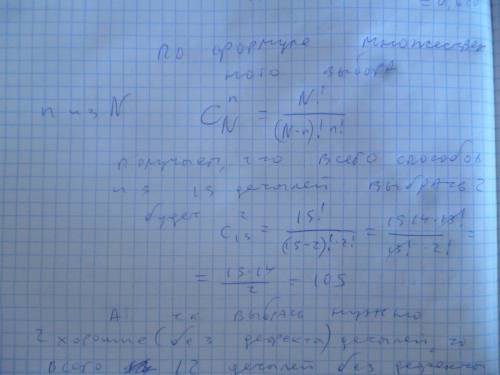 по формуле множествен
ного выбора
n из N C_N^n = N! / (N-n)! n!
получаем, что всего способов
из 15 деталей выбрать 2
будет C_15^2 = 15! / (15-2)! · 2! = 15·14·13! / 13! · 2! =
= 15·14 / 2 = 105
А т.к выбрать нужно
2 хорошие (без дефекта) деталей, то
всего 12 деталей без дефекты